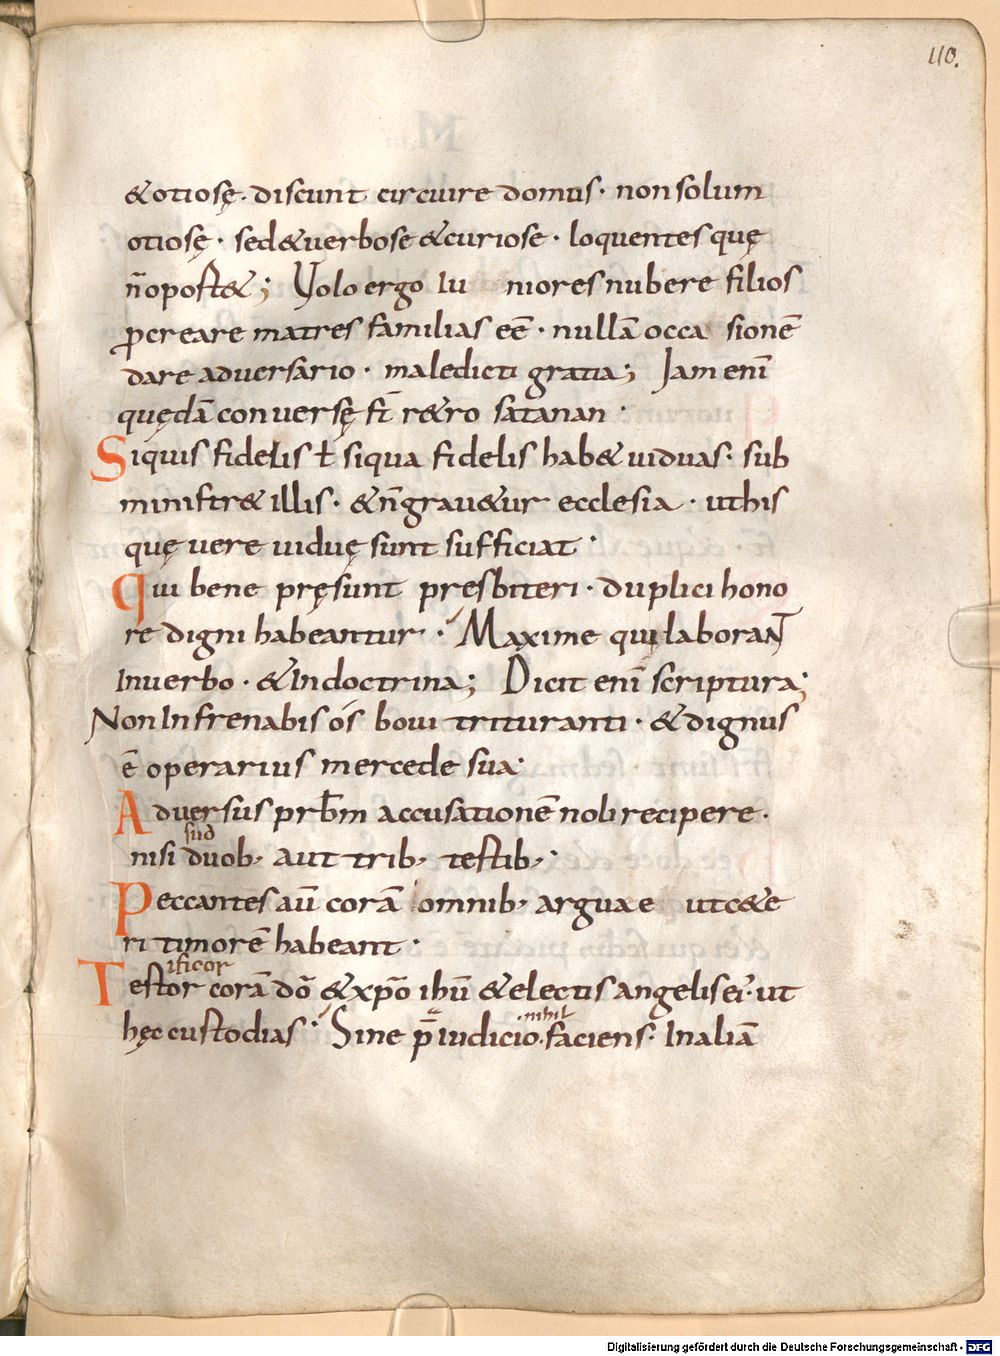 110.
&otiosę. discunt circuire domus. non solum
otiosę. sed & verbose & curiose. loquentes quę
n̄ oport&; Volo ergo iu niores nubere filios
ꝓcreare matres familias eē. nullā occa sionē
dare adversario. maledicti gratia; Jam enī
quędā conversę st̄ r&ro satanan.
Siquis fidelis ł siqua fidelis hab& viduas. sub
ministr& illis. & n̄ grav&ur ecclesia. ut his
quę vere viduę sunt sufficiat.
Qui bene pręsunt presbiteri. duplici hono
re digni habeantur. Maxime qui laborant
In verbo. & In doctrina; Dicit enī scriptura;
Non Infrenabis os bovi trituranti. & dignus
ē operarius mercede sua.
Adversus prb̄m accusationē noli recipere.
sub
nisi duob; aut trib; testib;.
Peccantes aū corā omnib; argua e ut c&e
ri timorē habeant.
ificor
Testor corā dō & xp̄o ih̄u & electis angelis ei. ut
hęc custodias. Sine p̄iudicio. faciens. In aliā
.nihil
Digitalisierung gefördert durch die Deutsche Forschungsgemeinschaft - DFG